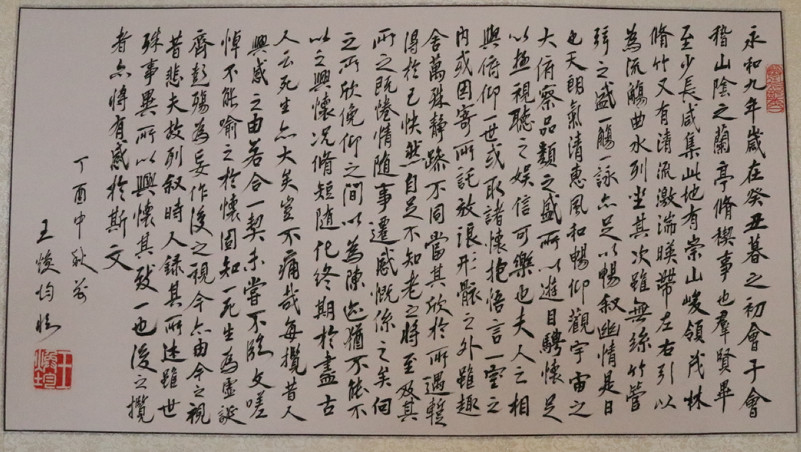 永和九年歲在癸丑暮之初會于會
稽山陰之蘭亭脩禊事也羣賢畢
至少長咸集此地有崇山峻領茂林
脩竹又有清流激湍暎帶左右引以
為流觴曲水列坐其次雖無絲竹管
弦之盛一觴一詠亦足以暢叙幽情是日
也天朗氣清惠風和暢仰觀宇宙之
大俯察品類之盛所以遊目騁懷足
以極視聽之娛信可樂也夫人之相
與俯仰一世或取諸懷抱悟言一室之
內或因寄所託放浪形骸之外雖趣
舍萬殊靜躁不同當其欣於所遇暫
得於己快然自足不知老之將至及其
所之既惓情隨事遷感慨係之矣向
之所欣俛仰之間以為陳迹猶不能不
以之興懷況脩短隨化終期於盡古
人云死生亦大矣豈不痛哉每攬昔人
興感之由若合一契未嘗不臨文嗟
悼不能喻之於懷固知一死生為虛誕
齊彭殤為妄作後之視今亦由今之視
昔悲夫故列叙時人錄其所述雖世
殊事異所以興懷其致一也後之攬
者亦將有感於斯文
丁酉中秋前
王煥均臨